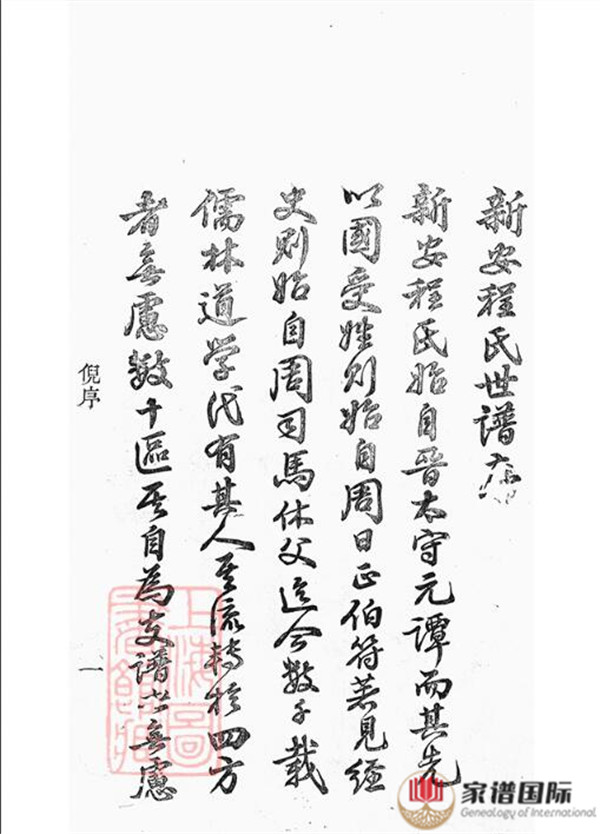 新安程氏世譜序
新安程氏始自晉太守元譚而其先
以國受姓則始自周日正伯符若見經
史則始自周司馬休父迄今數千載
儒林道學代有其人其流轉於四方
者無慮數十區其自為支譜亦無慮
倪序
一
上海圖書館藏
家谱国际
Geneology of International